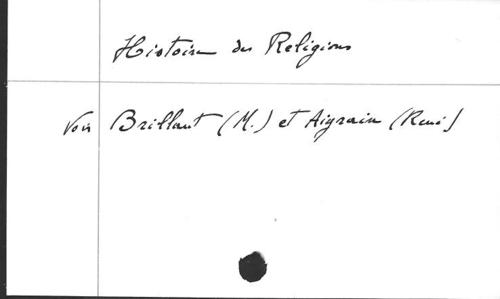 Histoire des Religions
Voir Brillant (M.) et Aigrain (René)